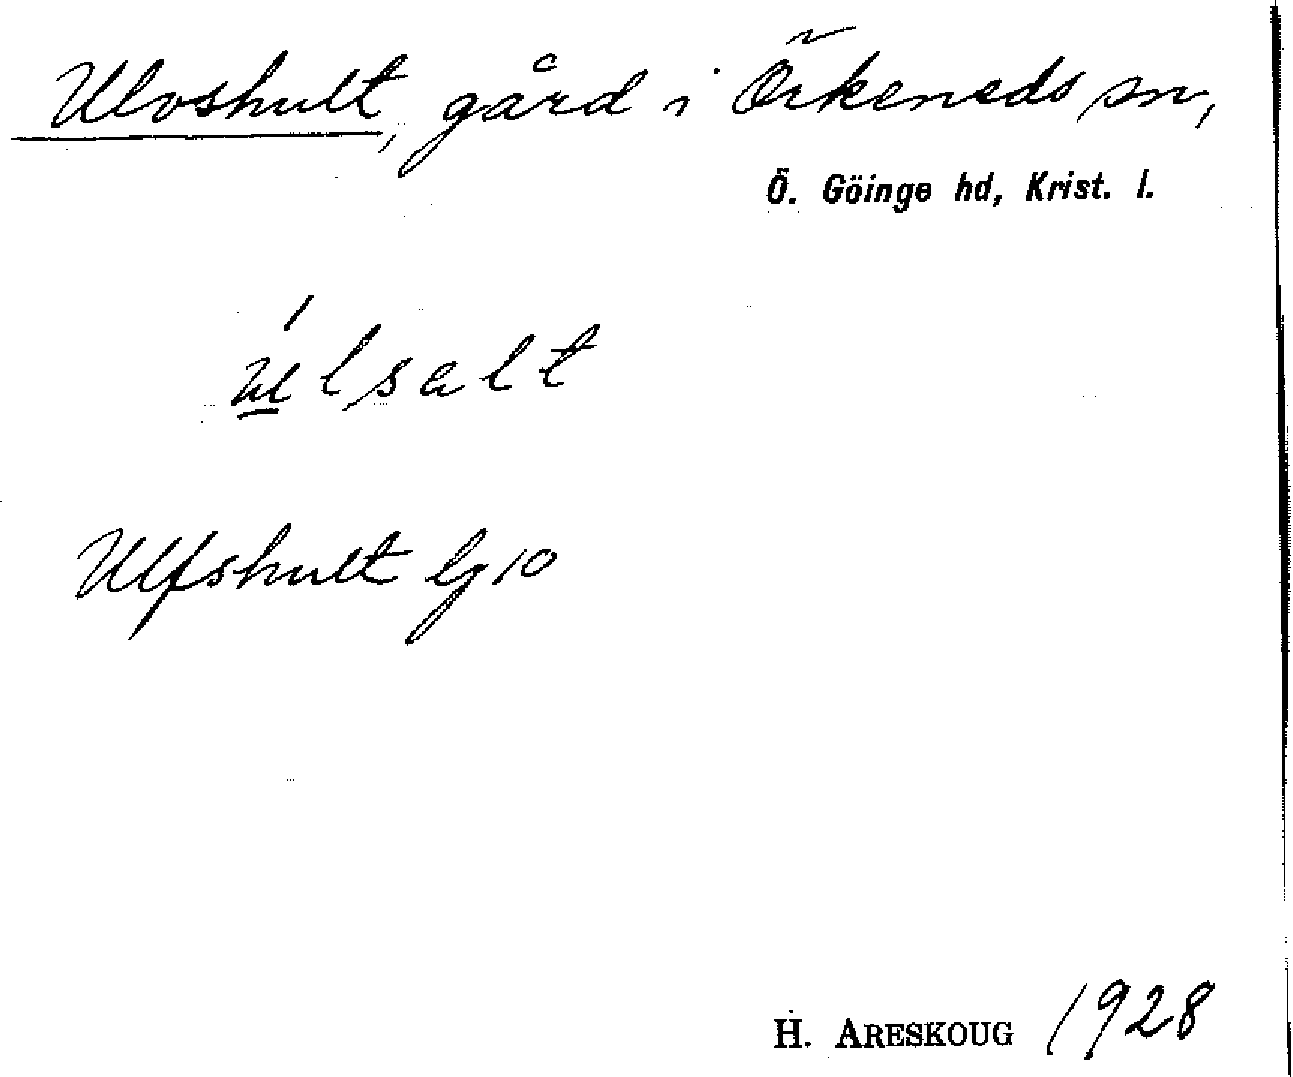 Ulvshult, gård i Örkeneds sn,
Ö. Göinge hd, Krist. l.
úlsalt
Ulfshult lg 10
H. ARESKOUG 1928